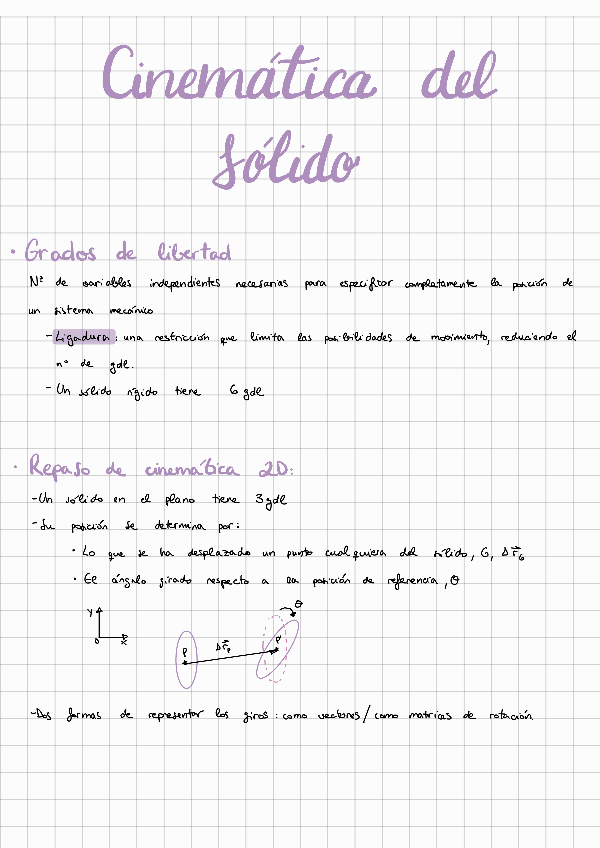 Cinemática del
sólido
· Grados de libertad
Nº de variables independientes necesarias para especificar completamente la posición de
un sistema mecánico
- Ligadura: una restricción que limita las posibilidades de movimiento, reduciendo el
nº de gdl.
- Un sólido rígido tiene 6 gdl
· Repaso de cinemática 2D:
- Un sólido en el plano tiene 3 gdl
- Su posición se determina por:
· Lo que se ha desplazado un punto cualquiera del sólido, G, Δr⃗G
· El ángulo girado respecto a la posición de referencia, θ
θ
Y
P Δr⃗P P'
O X
- Dos formas de representar los giros: como vectores / como matrices de rotación.